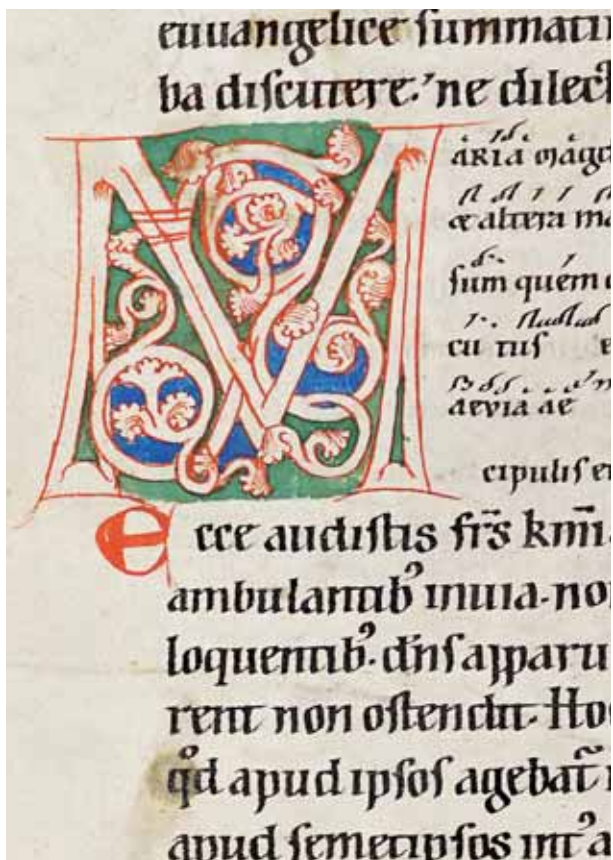 euuangelice ſummati
ba diſcutere.' ne dilect
MARIA magd
æ altera ma
ſum quem
cu tuſ e
aevia ae
cipuliſ e
Ecce audiſtis fr̄s km̄i
ambulantibꝰ inuia·no
loquentibꝰ. dn̄ſ apparu
rent non oſtendit. Ho
qͦd apud ipſoſ agebat̄
apud ſemetipſos intꝰ a